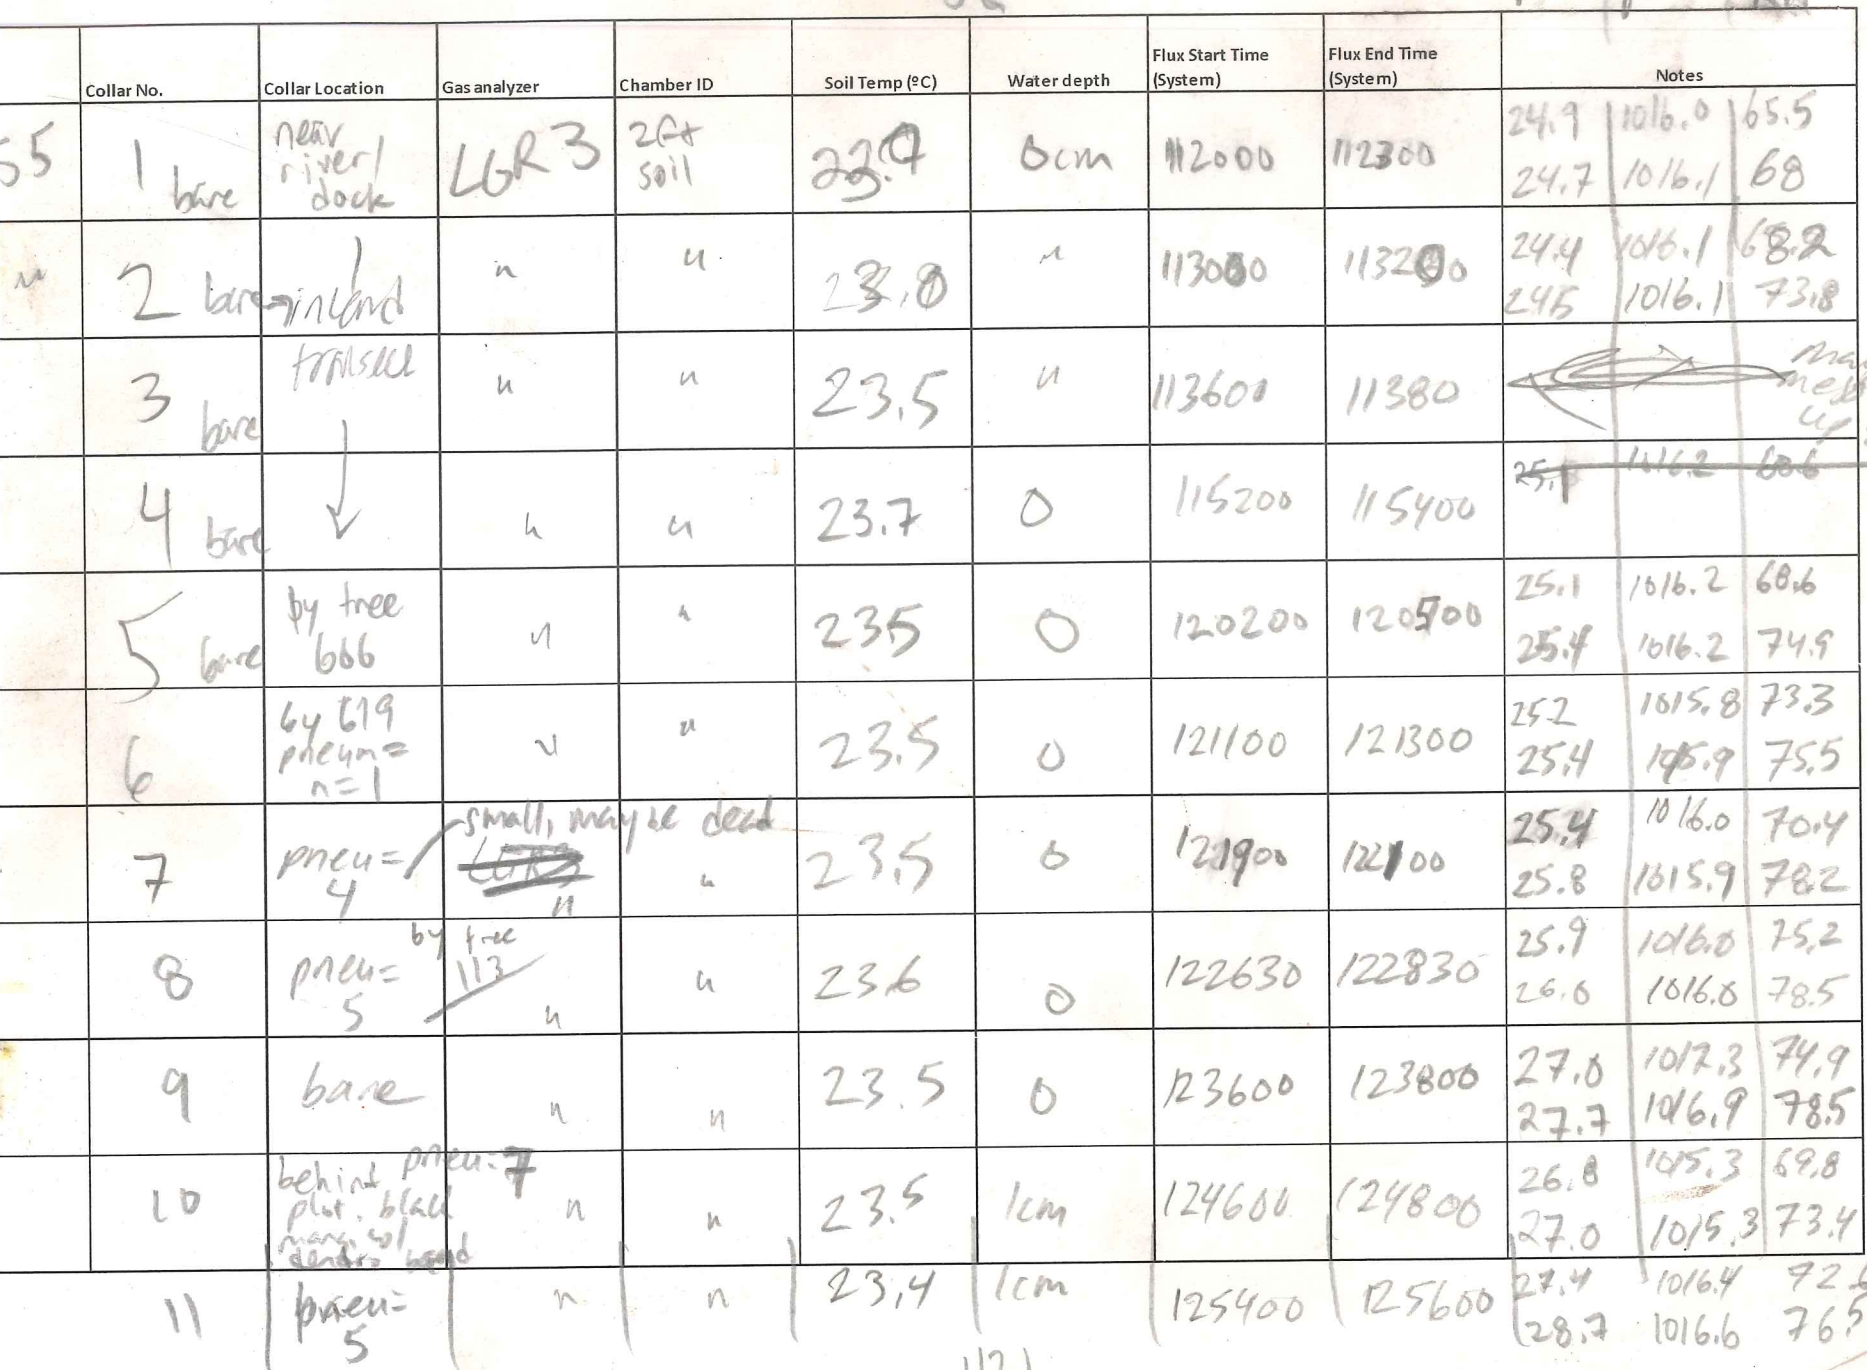 Collar No. Collar Location Gas analyzer Chamber ID Soil Temp (ºC) Water depth Flux Start Time (System) Flux End Time (System) Notes
55 1 bare near river/ dock LGR3 2ft soil 0cm 112000 112300 24.9 1016.0 65.5
24.7 1016.1 68
" 2 bare → inland " " 23.0 " 24.4 1016.1 68.2
24.5 1016.1 73.8
3 bare transect " " 23.5 " 113600 11380 mess up
4 bare " " 23.7 0 115200 115400 25.1 1016.2 68.6
5 bare by tree 666 " " 235 0 120200 120500 25.1 1016.2 68.6
25.4 1016.2 74.9
6 by 619 pneum= n=1 " " 23.5 0 121100 121300 252 1015.8 73.3
25.4 1015.9 75.5
7 pneu= 4 small, may be dead LGR3 " " 23.5 0 121900 122100 25.4 1016.0 70.4
25.8 1015.9 78.2
8 pneu= 5 by tree 113 " " 23.6 0 122630 122830 25.9 1016.0 75.2
26.0 1016.0 78.5
9 bare " " 23.5 0 123600 123800 27.0 1017.3 74.9
27.7 1016.9 78.5
10 pneu=7 behind plot. black dendro band " " 23.5 1cm 124600 124800 26.8 1015.3 69.8
27.0 1015.3 73.4
11 pneu= 5 " " 23,4 1cm 125400 125600 27.4 1016.4
28.7 1016.6 76.5